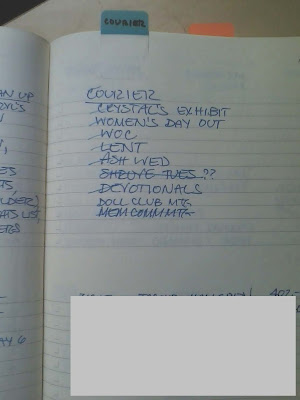 COURIER
COURIER
CRYSTAL'S EXHIBIT
WOMEN'S DAY OUT
WOC
LENT
ASH WED
SHROVE TUES ??
DEVOTIONALS
DOLL CLUB MTG
MEM COMM MTG
AN UP
RYL'S
ES
TS,
LDER)
ATS LIST,
AY 6
402-